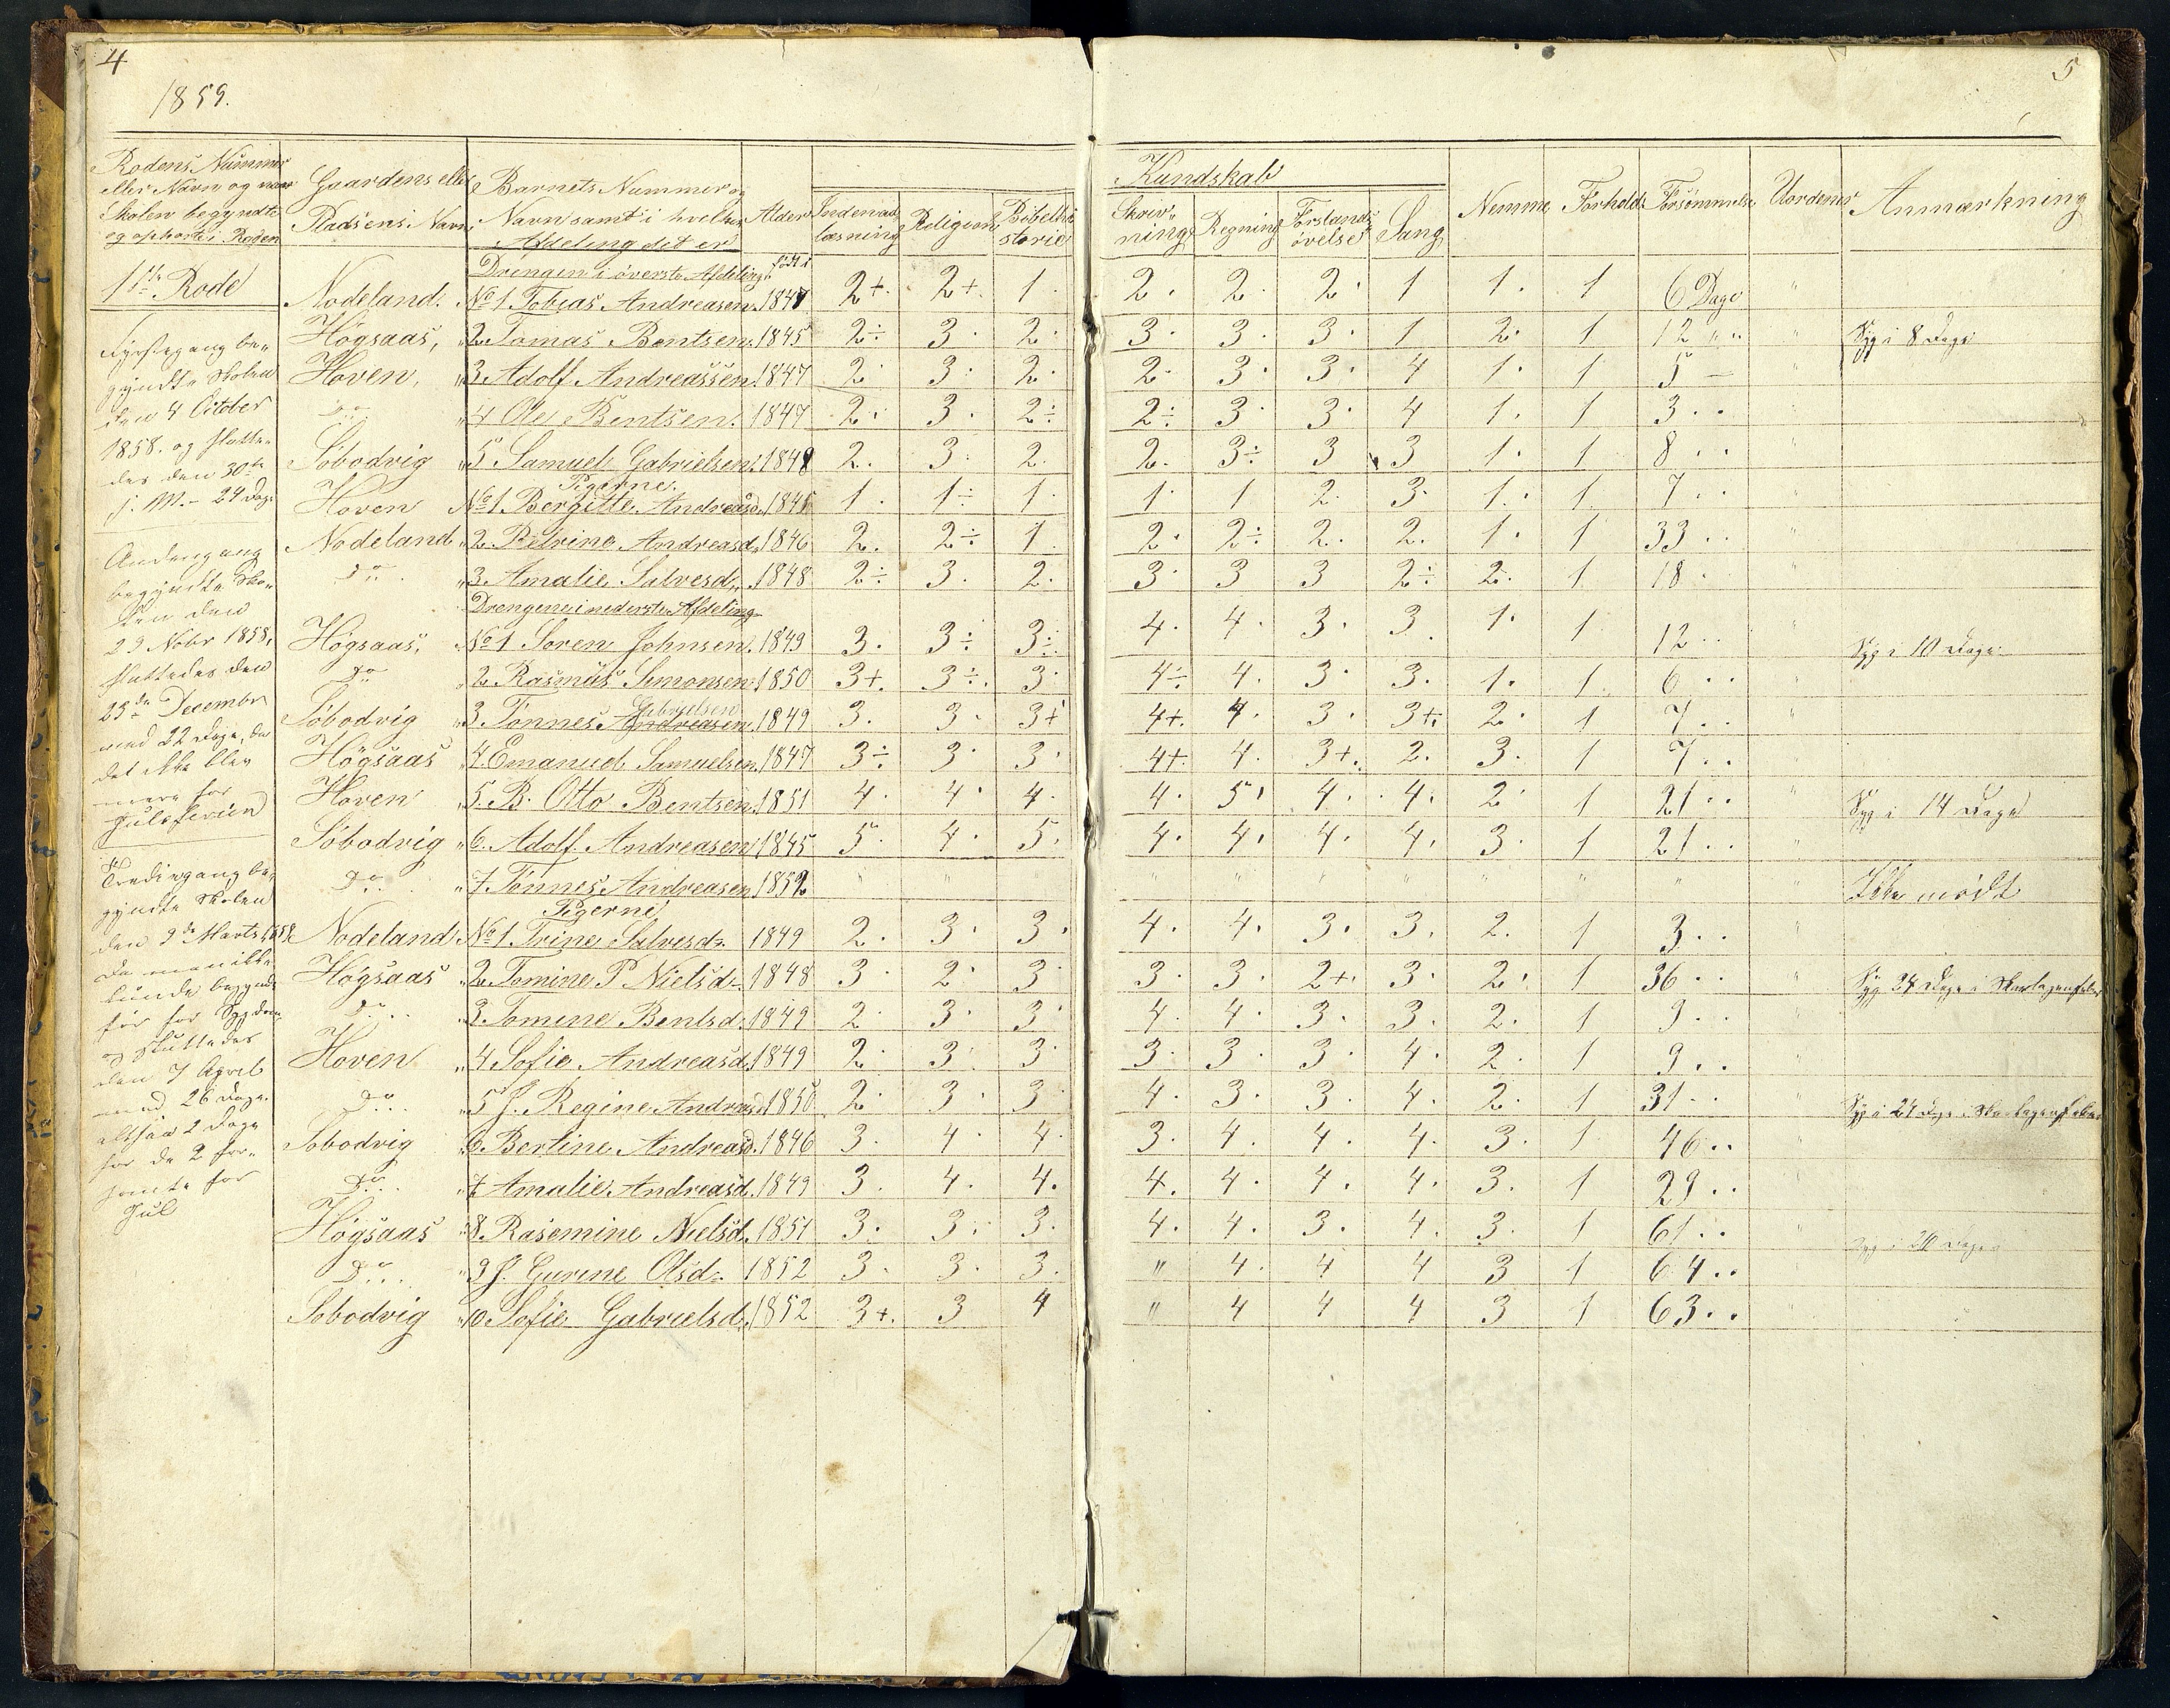 4
5
1859.
Rodens Nummer
eller Navn og naar
Skolen begyndte
og ophørte i Roden
Gaardens eller
Pladsens Navn
Barnets Nummer og
Navn samt i hvilken
Afdeling det er
Alder
Kundskab
Indenads
læsning
Religion
Bibelhi
storie
Skriv"
ning
Regning
Forstands
øvelse
Sang
Nemme
Forhold
Forsømmelse
Uordener
Anmærkning
1ste Rode
Drengene i øverste Afdeling. født i
Nodeland. No 1 Tobias Andreasen. 1847 2+. 2+. 1. 2. 2. 2. 1 1. 1 6 Dage "
Högsaas, " 2 Tomas Bentsen. 1845 2÷ 3. 2. 3. 3. 3. 1 2. 1 12 " " " Syg i 8 Dage
Hoven, " 3 Adolf Andreassen 1847 2. 3. 2. 2. 3. 3. 4 1. 1 5 — "
Do " 4 Ole Bentsen. 1847 2. 3. 2÷ 2÷ 3. 3. 4 1. 1 3 . . "
Söbodvig " 5 Samuel Gabrielsen. 1848 2. 3. 2. 2. 3÷ 3 3 1. 1 8 . . "
Pigerne.
Hoven No 1 Bergitte Andreasd. 1845 1. 1÷ 1. 1. 1 2. 3. 1. 1 7 . . "
Nodeland " 2 Petrine Andreasd. 1846 2. 2÷ 1. 2. 2÷ 2. 2. 1. 1 33 . . "
Do " 3 Amalie Salvesd. 1848 2÷ 3. 2. 3. 3 3 2÷ 2. 1 18 . "
Drengene i nederste Afdeling
Högsaas, No 1 Soren Johnsen. 1849 3. 3÷ 3÷ 4. 4. 3. 3. 1. 1 12 . . " Syg i 10 Dage
Do " 2 Rasmus Simonsen 1850 3+. 3÷. 3. 4÷ 4. 3. 3. 1. 1 6 . . "
Gabrielsen
Söbodvig " 3. Tønnes Andreasen 1849 3. 3. 3+ 4+. 4. 3. 3+. 2. 1 7 . . "
Högsaas " 4. Emanuel Samuelsen. 1847 3÷ 3. 3. 4+. 4. 3+. 2. 3. 1 7 . .
Hoven " 5. B. Otto Bentsen 1851 4. 4. 4. 4. 5. 4. 4. 2. 1 21 . . " Syg i 14 Dage
Söbodvig " 6. Adolf Andreasen 1845 5. 4. 5. 4. 4. 4. 4. 3. 1 21 . . "
Do " 7. Tønnes Andreasen 1852 " " " " " " " " " " " Ikke mødt
Pigerne
Nodeland No 1 Trine Salvesd. 1849 2. 3. 3. 4. 4. 3. 3. 2. 1 3 . .
Högsaas " 2 Tomine P Nielsd. 1848 3. 2. 3. 3. 3. 2+. 3. 2. 1 36 . . " Syg 24 Dage i Skarlagensfeber
Do " 3. Tomine Bentsd. 1849 2. 3. 3. 4. 4. 3. 3. 2. 1 9 . .
Hoven " 4 Sofie Andreasd. 1849 2. 3. 3. 3. 3. 3. 4. 2. 1 9 . . "
Do " 5 J. Regine Andreasd 1850 2. 3. 3. 4. 3. 3. 4. 2. 1 31 . . Syg i 24 Dage i Skarlagensfeber
Sobodvig " 6 Bertine Andreasd. 1846 3. 4. 4. 3. 4. 4. 4. 3. 1 46 . . "
Do " 7 Amalie Andreasd. 1849 3. 4. 4. 4. 4. 4. 4. 3. 1 29 . .
Högsaas " 8. Rasemine Nielsd. 1851 3. 3. 3. 4. 4. 3. 4. 3. 1 61 . . " Syg i 20 Dage
Do " 9 J. Gurine Olsd. 1852 3. 3. 3. " 4. 4 4 3 1 64 . .
Sobodvig " 10 Sofie Gabrielsd. 1852 3+. 3 4 " 4 4 4 3 1 63 . . "
Førstegang be"
gyndte Skolen
den 4 October
1858. og slutte"
des den 30te
s. M. — 24 Dage
Andengang
begyndte Sko"
len den
29 Nobr 1858,
sluttedes den
23de Decembr
med 22 Dage, da
det ikke blev
mere for
Juleferien
Tredjegang be"
gyndte Skolen
den 9de Marts 1859
da man ikke
kunde begynde
før for Sygdom
og sluttedes
den 7 April
med 26 Dage.
altsaa 2 Dage
for de 2 for"
somte for
Jul